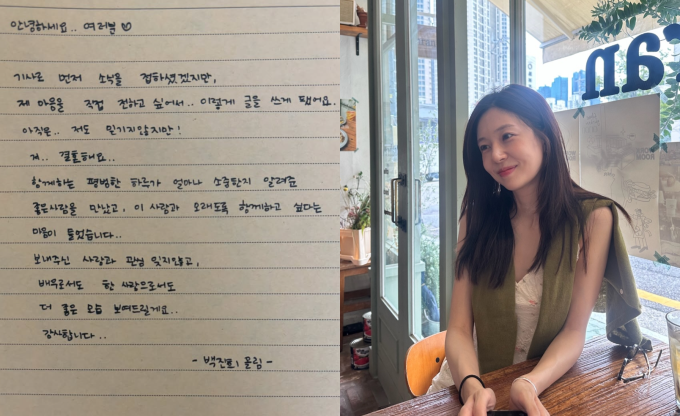 안녕하세요.. 여러분 ♡
기사로 먼저 소식을 접하셨겠지만,
제 마음을 직접 전하고 싶어서.. 이렇게 글을 쓰게 됐어요..
아직은.. 저도 믿기지않지만!
저.. 결혼해요..
함께하는 평범한 하루가 얼마나 소중한지 알려준
좋은사람을 만났고, 이 사람과 오래도록 함께하고 싶다는
마음이 들었습니다..
보내주신 사랑과 관심 잊지않고,
배우로서도 한 사람으로서도
더 좋은 모습 보여드릴게요..
감사합니다..
- 백진희 올림 -